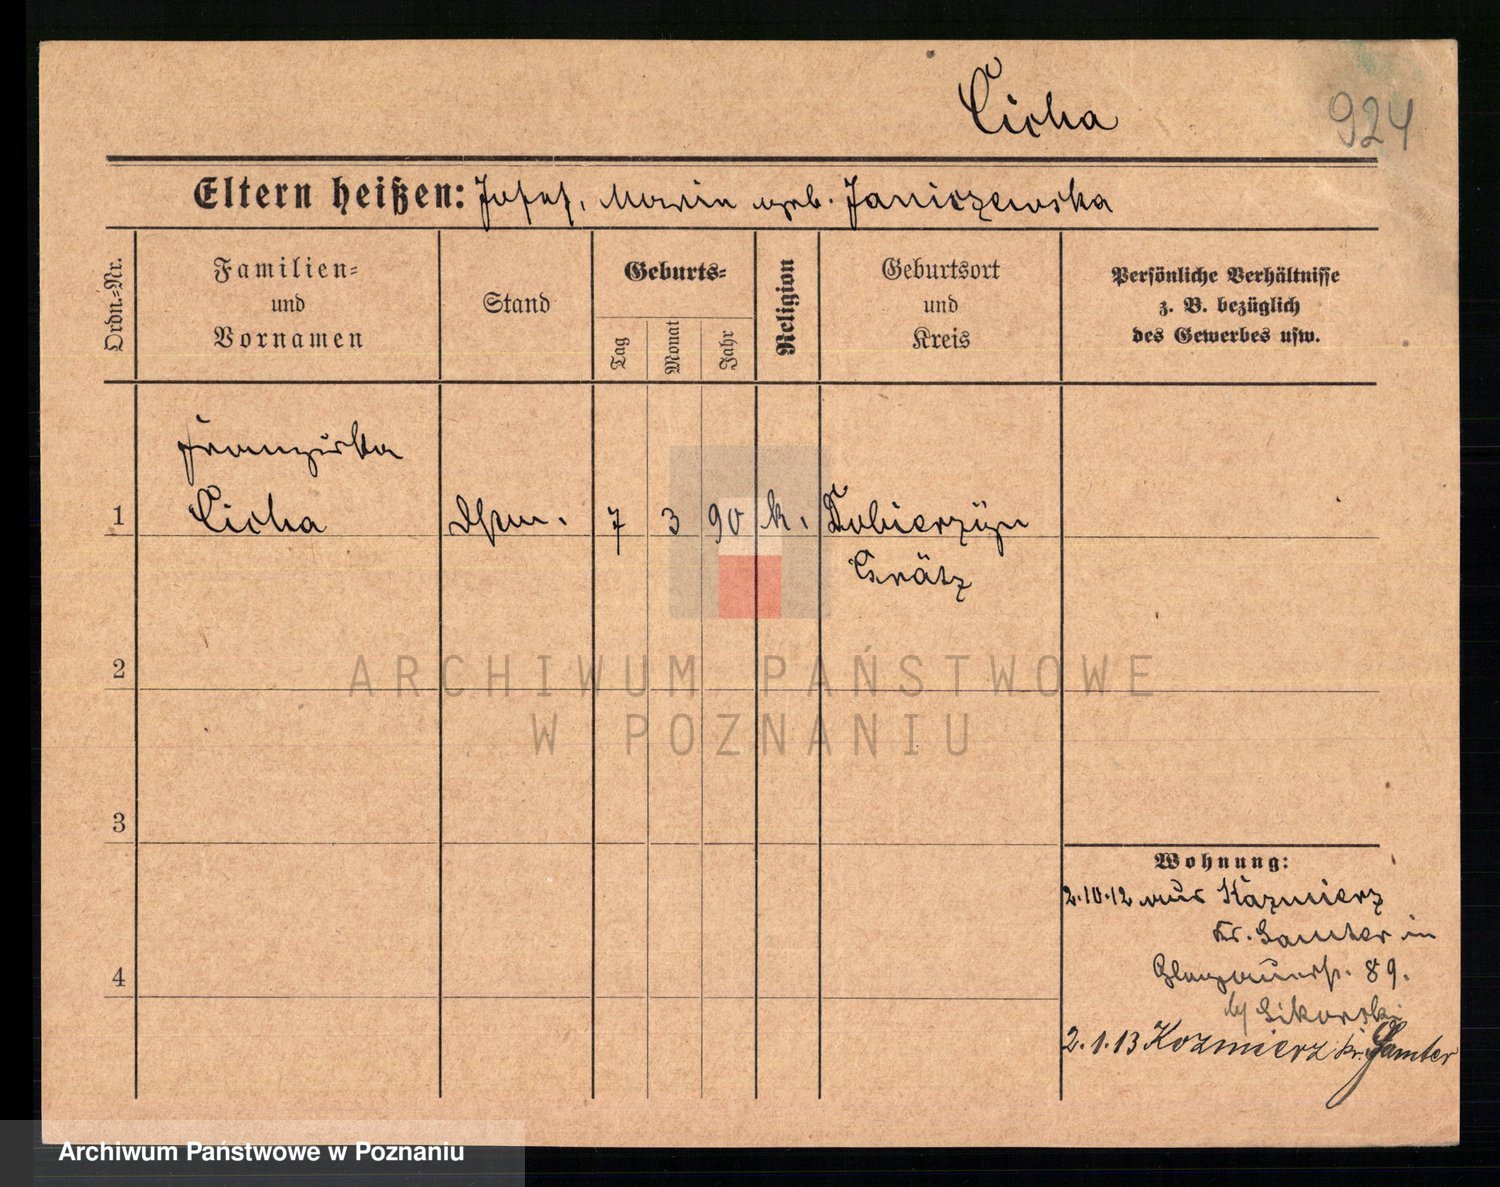 Cicha
924
Eltern heißen: Josef, Maria geb. Janiszewska
Ordn.=Nr.
Familien=
und
Vornamen
Stand
Geburts=
Tag
Monat
Jahr
Religion
Geburtsort
und
Kreis
Persönliche Verhältnisse
z. B. bezüglich
des Gewerbes usw.
Franziska
1 Cicha 7 3 90 k. Dobierzyn
Grätz
2
ARCHIWUM PAŃSTWOWE
W POZNANIU
3
Wohnung:
2.10.12 aus Kazmierz
Kr. Samter in
Glogauerstr. 89.
4
b/ Sikorski
2.1.13 Kozmierz kr. Samter
Archiwum Państwowe w Poznaniu